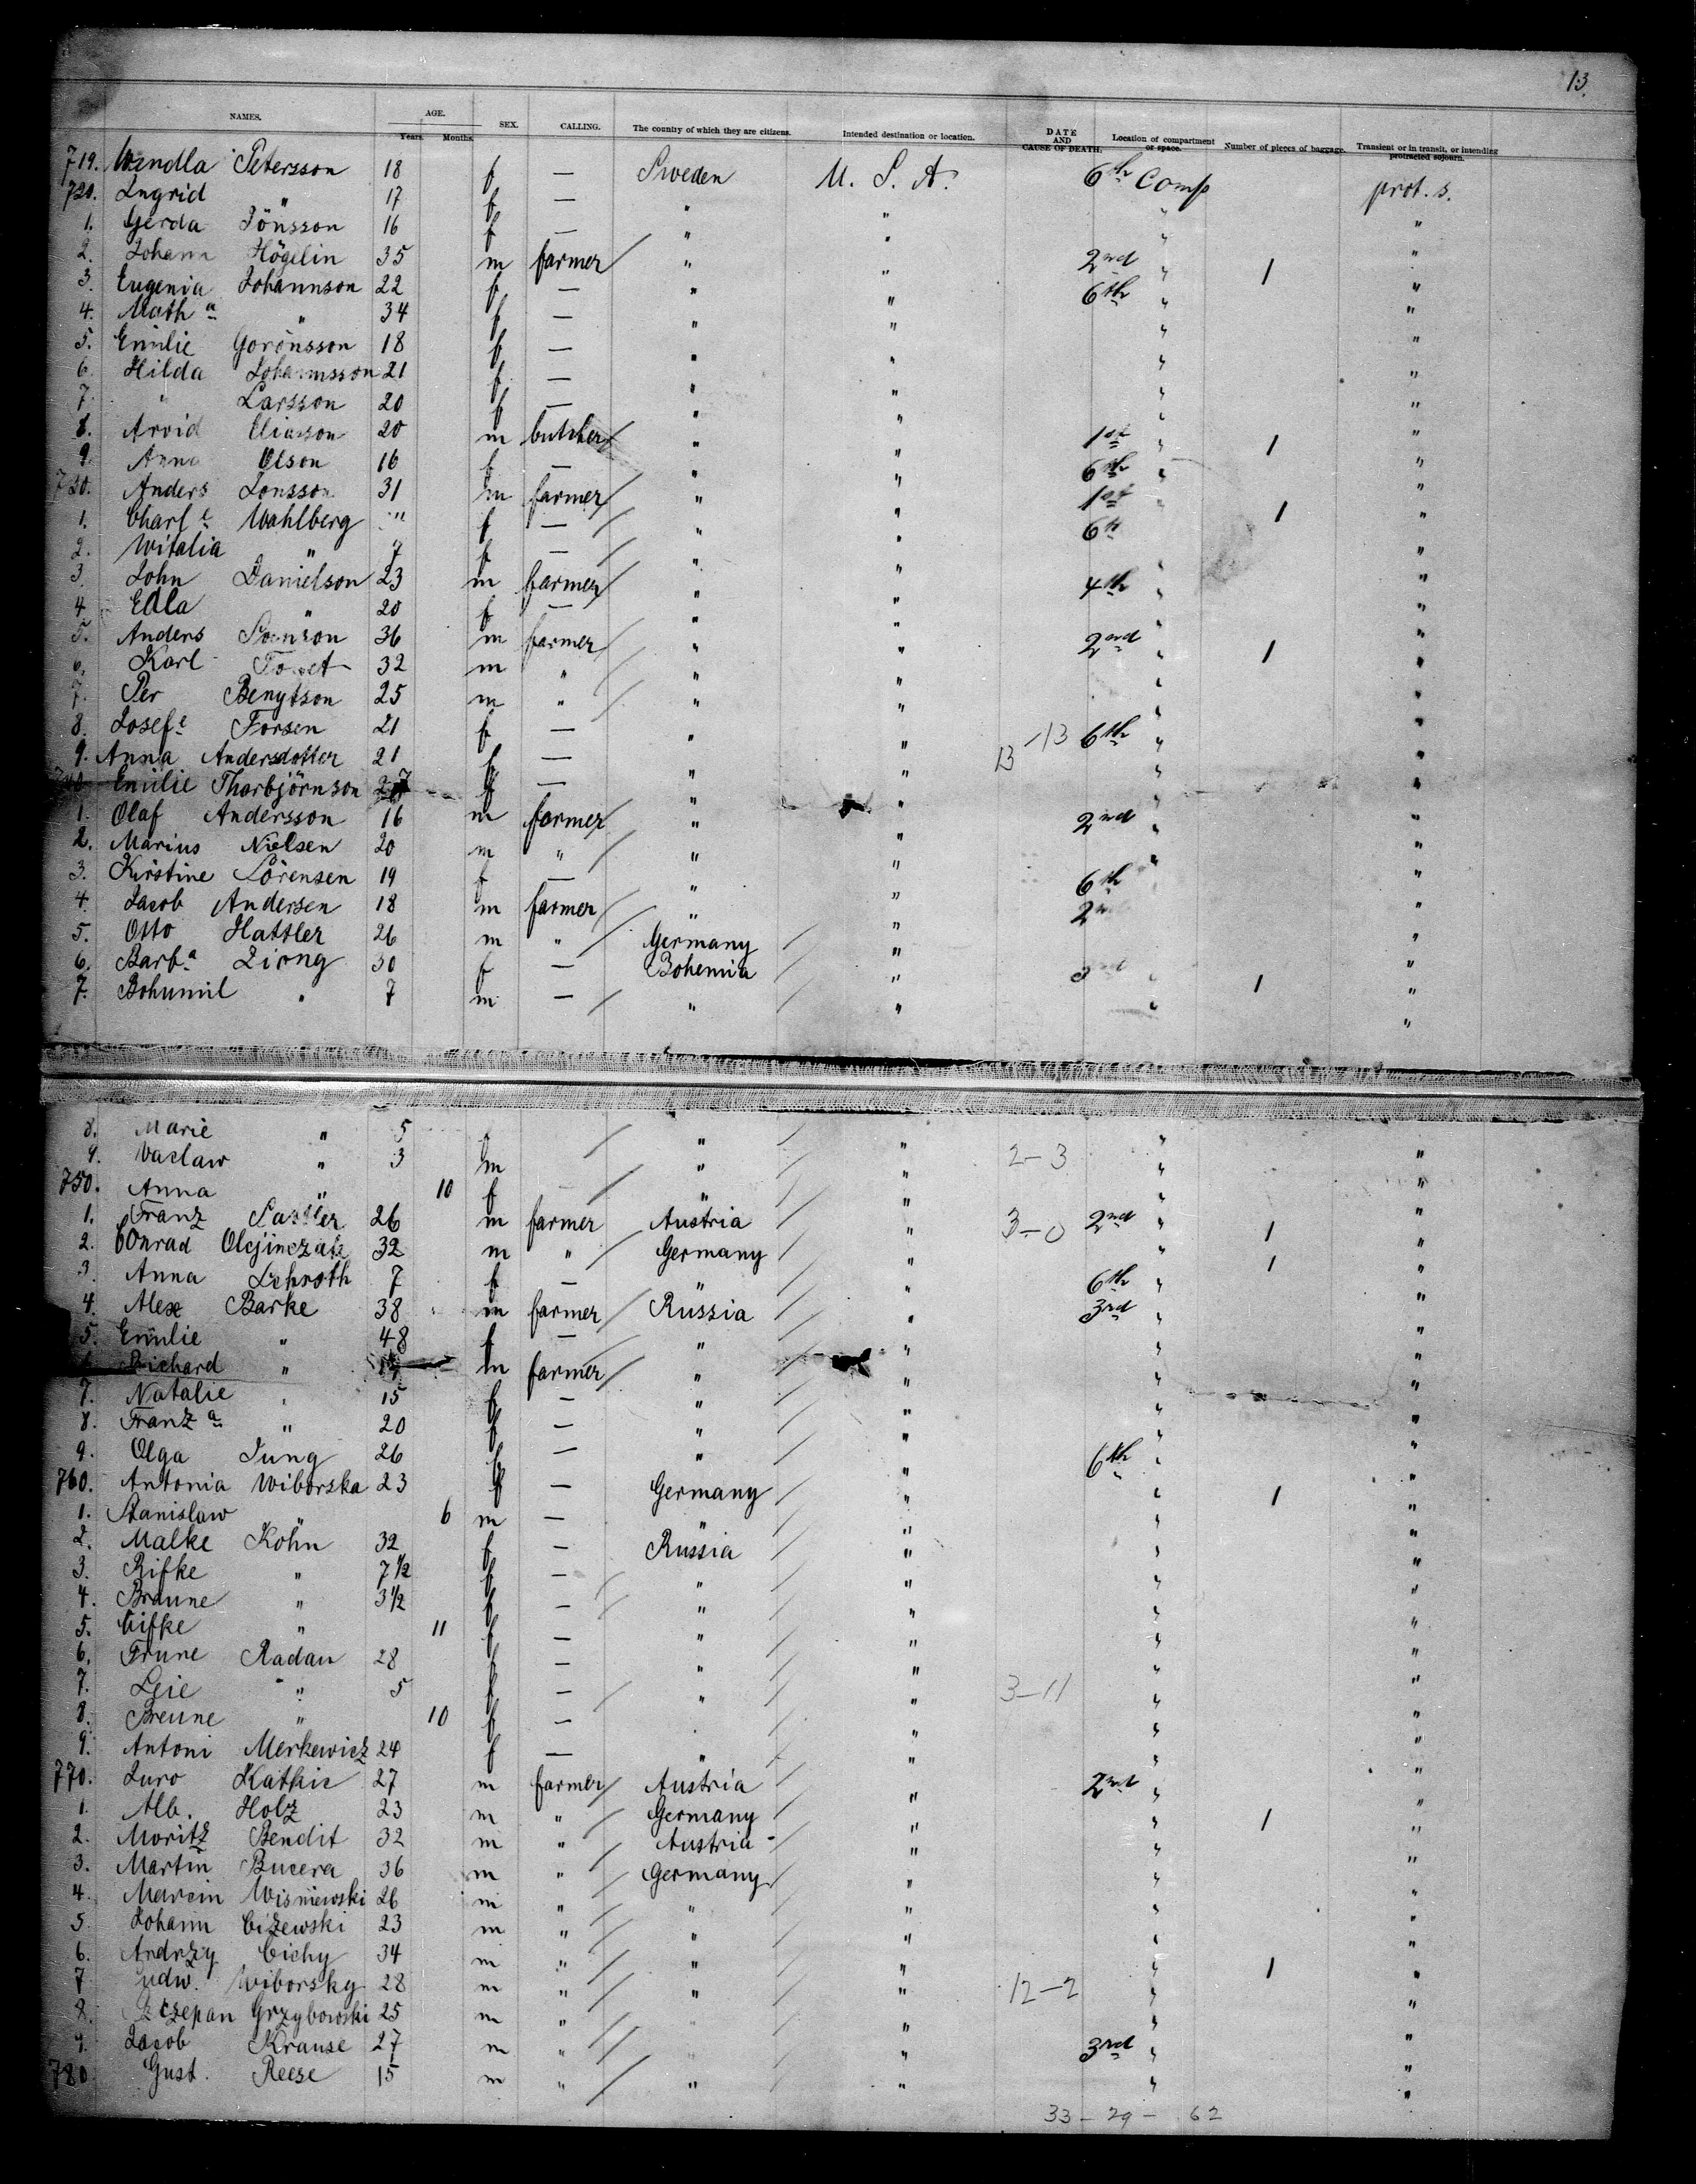 13.
NAMES. AGE. Years. Months. SEX. CALLING. The country of which they are citizens. Intended destination or location. DATE AND CAUSE OF DEATH. Location of compartment or space. Number of pieces of baggage. Transient or in transit, or intending protracted sojourn.
719. Wendla Petersson 18 f — Sweden U. S. A. 6th Comp prot. s.
720. Ingrid " 17 f — " " " "
1. Gerda Jönsson 16 f — " " " "
2. Johann Högelin 35 m farmer " " 2nd " 1 "
3. Eugenia Johannson 22 f — " " 6th " "
4. Matha " 34 f — " " " "
5. Emilie Goronsson 18 f — " " " "
6. Hilda Johannsson 21 f — " " " "
7. " Larsson 20 f — " " " "
8. Arvid Eliasson 20 m butcher " " 1st " 1 "
9. Anna Olson 16 f — " " 6th " "
730. Anders Jonsson 31 m farmer " " 1st " 1 "
1. Charle Wahlberg " f — " " 6th "
2. Witalia " 7 f — " " " "
3. John Danielson 23 m farmer " " 4th " "
4. Edla " 20 f — " " "
5. Anders Svenson 36 m farmer " " 2nd " 1 "
6. Karl 32 m " " " " "
7. Per Bengtson 25 m " " " " "
8. Josefe Forsen 21 f — " " 13 -13 6th " "
9. Anna Andersdotter 21 f — " " " "
740 Emilie Thorbjörnson 27 f — " " " "
1. Olaf Andersson 16 m farmer " " 2nd " "
2. Marius Nielsen 20 m " " " " "
3. Kirstine Sörensen 19 f — " " 6th "
4. Jacob Andersen 18 m farmer " " 2nd "
5. Otto Hattler 26 m " Germany " "
6. Barba Zirng 30 f — Bohemia " " 1 "
7. Bohumil " 7 m — " " " "
8. Marie " 5 f " " " "
9. Waclaw " 3 m " " 2-3 " "
750. Anna " 10 f — " " " "
1. Franz Sattler 26 m farmer Austria " 3-0 2nd " 1 "
2. Conrad Olejinczak 32 m " Germany " " 1 "
3. Anna Lehroth 7 f — " " 6th " "
4. Alex Barke 38 m farmer Russia " 3rd " "
5. Emilie " 48 f — " " " "
6. Richard " m farmer " " " "
7. Natalie " 15 f — " " " "
8. Franza " 20 f — " " " "
9. Olga Jung 26 f — " " 6th " "
760. Antonia Wiborska 23 f — Germany " " 1 "
1. Stanislaw " 6 m — " " " "
2. Malke Kohn 32 f — Russia " " "
3. Rifke " 7 1/2 f — " " " "
4. Braune " 3 1/2 f — " " " "
5. Cifke " 11 f — " " " "
6. Frune Radan 28 f — " " " "
7. Leie " 5 f — " " 3-11 " "
8. Breune " 10 f — " " " "
9. Antoni Merkewicz 24 f — " " " "
770. Juro Katkic 27 m farmer Austria " 2nd " "
1. Alb. Holz 23 m " Germany " " 1 "
2. Moritz Bendit 32 m " Austria " " "
3. Martin Bucera 36 m " Germany " " "
4. Marcin Wisniewski 26 m " " " " "
5. Johann Cizewski 23 m " " " " "
6. Andrzy Cichy 34 m " " " " 1 "
7. Ludw. Wiborsky 28 m " " " 12-2 " "
8. Szczepan Grzybowski 25 m " " " " "
9. Jacob Krause 27 m " " " 3rd " "
780 Gust. Reese 15 m " " " " "
33 - 29 - 62